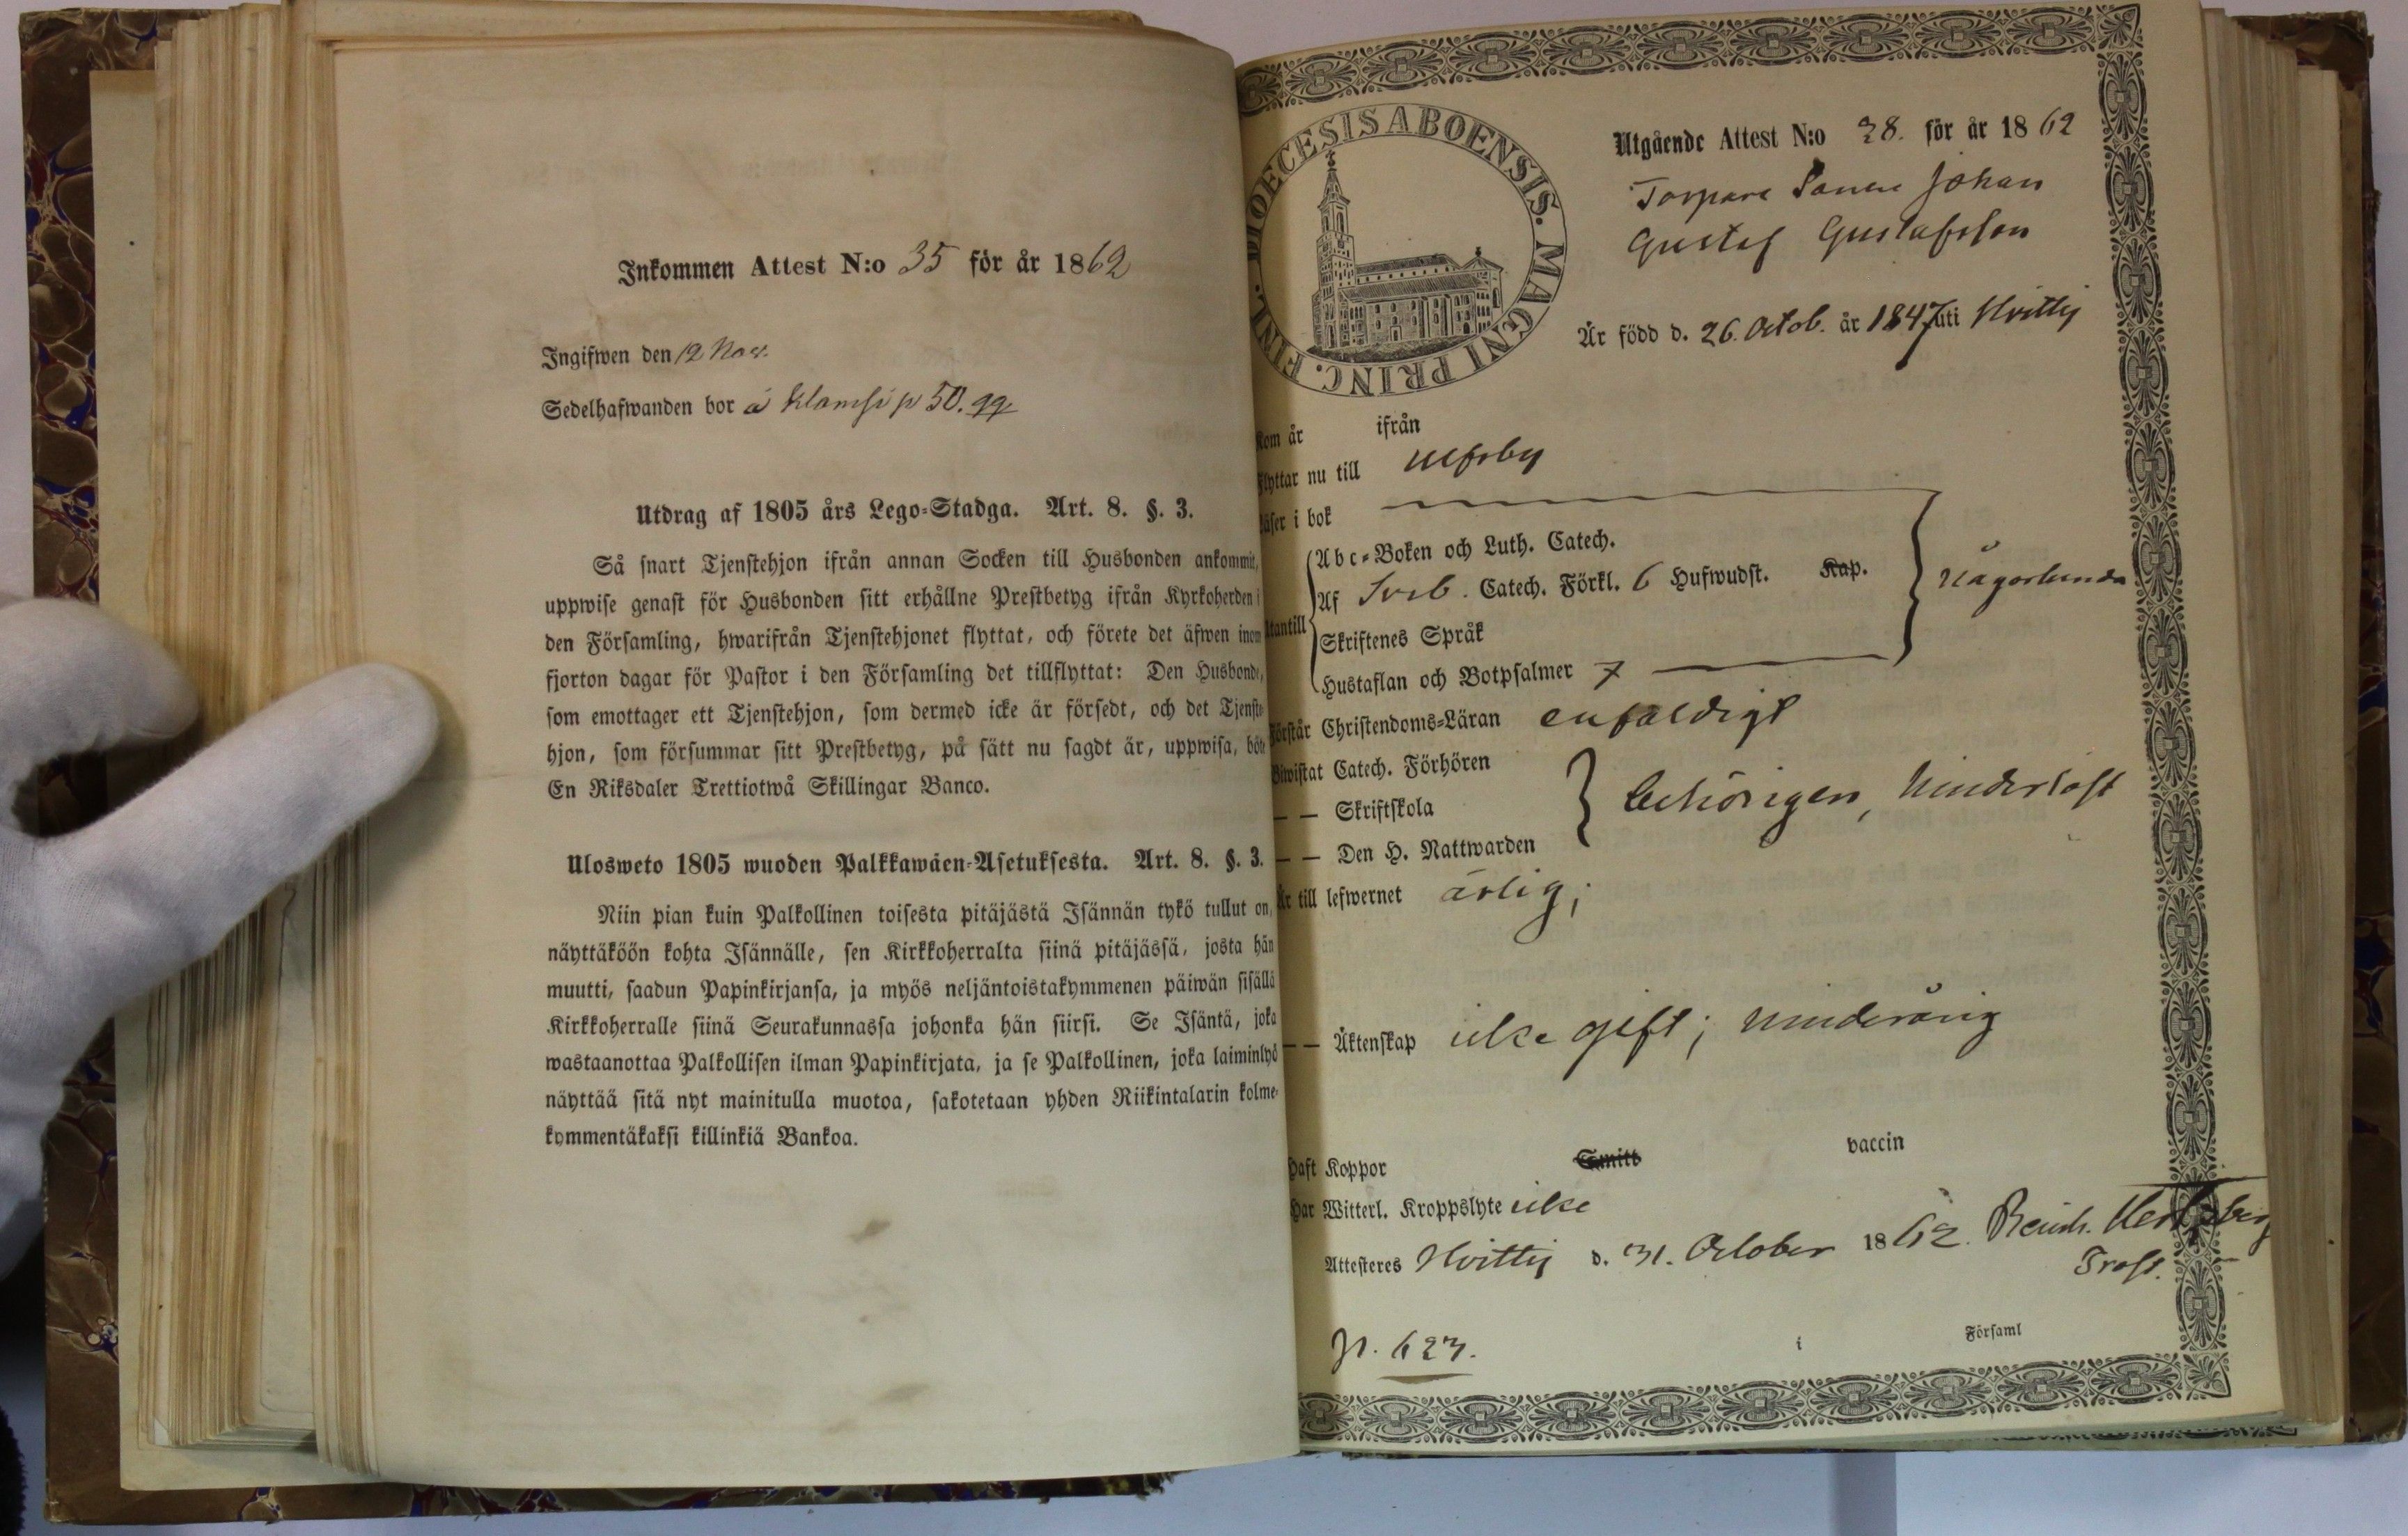 Inkommen Attest N:o 35 för år 1862
Ingifwen den 12 Nov.
Sedelhafwanden bor å Klamsi p 50. qq
Utdrag af 1805 års Lego-Stadga. Art. 8. §. 3.
Så snart Tjenstehjon ifrån annan Socken till Husbonden ankommit,
uppwise genast för Husbonden sitt erhållne Prestbetyg ifrån Kyrkoherden i
den Församling, hwarifrån Tjenstehjonet flyttat, och förete det äfwen inom
fjorton dagar för Pastor i den Församling det tillflyttat: Den Husbonde,
som emottager ett Tjenstehjon, som dermed icke är försedt, och det Tjenste-
hjon, som försummar sitt Prestbetyg, på sätt nu sagdt är, uppwisa, böte
En Riksdaler Trettiotwå Skillingar Banco.
Ulosweto 1805 wuoden Palkkawäen-Asetuksesta. Art. 8. §. 3.
Niin pian kuin Palkollinen toisesta pitäjästä Isännän tykö tullut on,
näyttäköön kohta Isännälle, sen Kirkkoherralta siinä pitäjässä, josta hän
muutti, saadun Papinkirjansa, ja myös neljäntoistakymmenen päiwän sisällä
Kirkkoherralle siinä Seurakunnassa johonka hän siirsi. Se Isäntä, joka
wastaanottaa Palkollisen ilman Papinkirjata, ja se Palkollinen, joka laiminlyö
näyttää sitä nyt mainitulla muotoa, sakotetaan yhden Riikintalarin kolme-
kymmentäkaksi killinkiä Bankoa.
DIOECESIS ABOENSIS. MAGNI PRINC. FINL.
Utgående Attest N:o 28. för år 1862
Torpare Sonen Johan
Gustaf Gustafsson
Är född d. 26. Octob. år 1847 uti Hvittis
Kom år ifrån
Flyttar nu till Ulfsby
Läser i bok
Abc-Boken och Luth. Catech.
Af Sveb. Catech. Förkl. 6 Hufwudst. Kap.
Någorlunda
Utantill
Skriftenes Språk
Hustaflan och Botpsalmer 7
Förstår Christendoms-Läran enfaldigt
Biwistat Catech. Förhören
— — Skriftskola
behörigen, hinderlöst
— — Den H. Nattwarden
Är till lefwernet ärlig;
— — Äktenskap icke gift; minderårig
Haft Koppor Smitt vaccin
Har Witterl. Kroppslyte icke
Attesteres Hvittis d. 31. October 1862. Reinh. Hertzberg
Prost.
p. 623.
i Församl